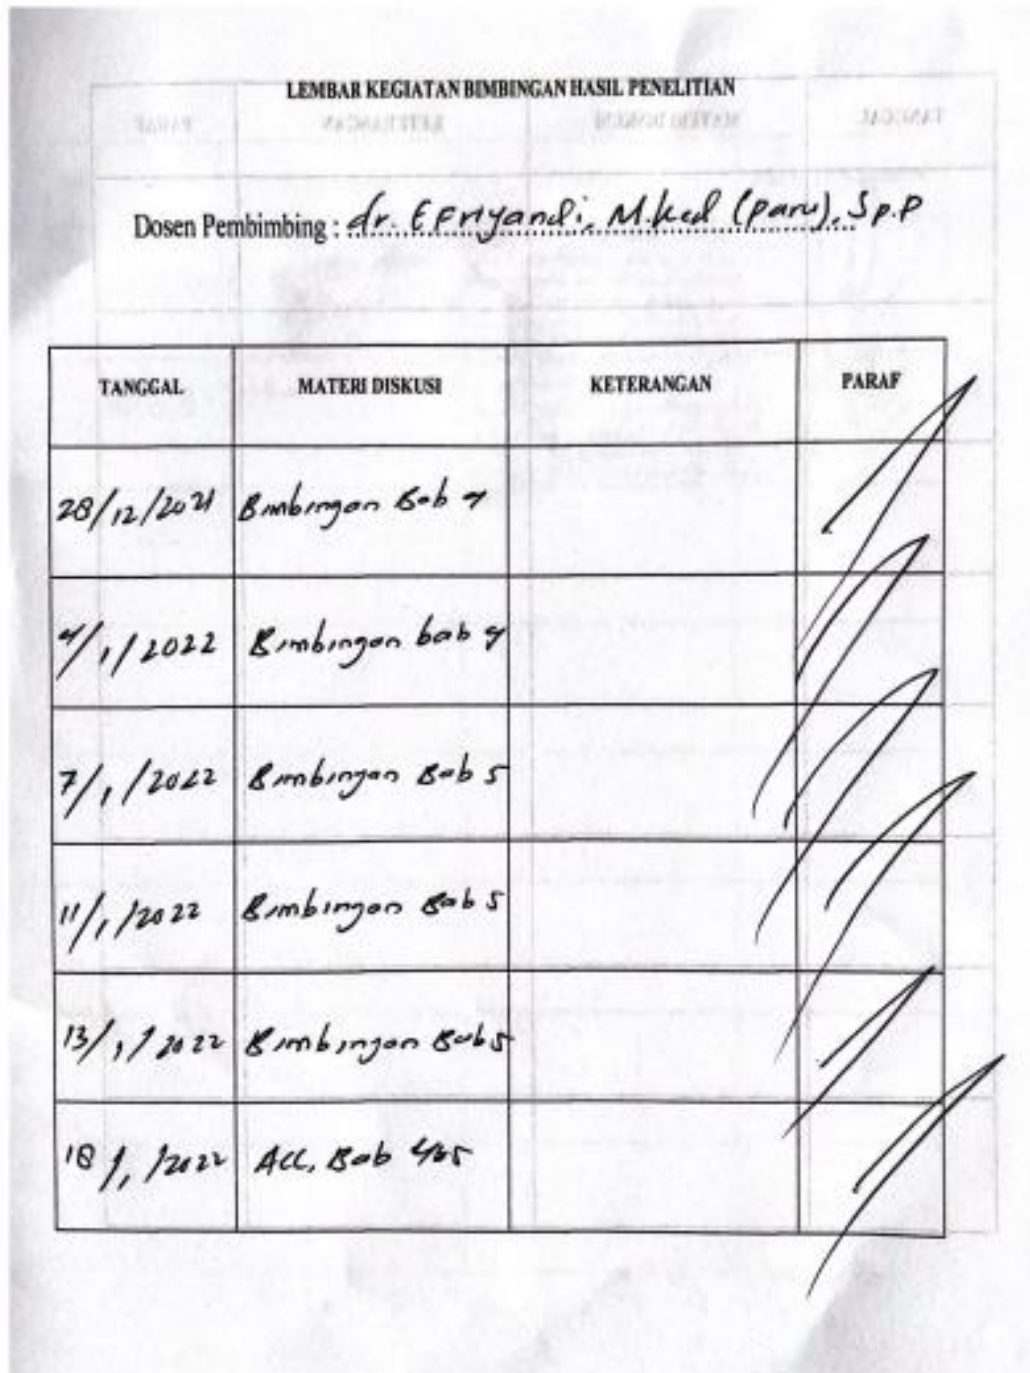 LEMBAR KEGIATAN BIMBINGAN HASIL PENELITIAN
Dosen Pembimbing : dr. Efriyandi, M.ked (paru), Sp.P
TANGGAL MATERI DISKUSI KETERANGAN PARAF
28/12/2021 Bimbingan Bab 4
4/1/2022 Bimbingan bab 4
7/1/2022 Bimbingan Bab 5
11/1/2022 Bimbingan Bab 5
13/1/2022 Bimbingan Bab 5
18/1/2022 Acc, Bab 4&5